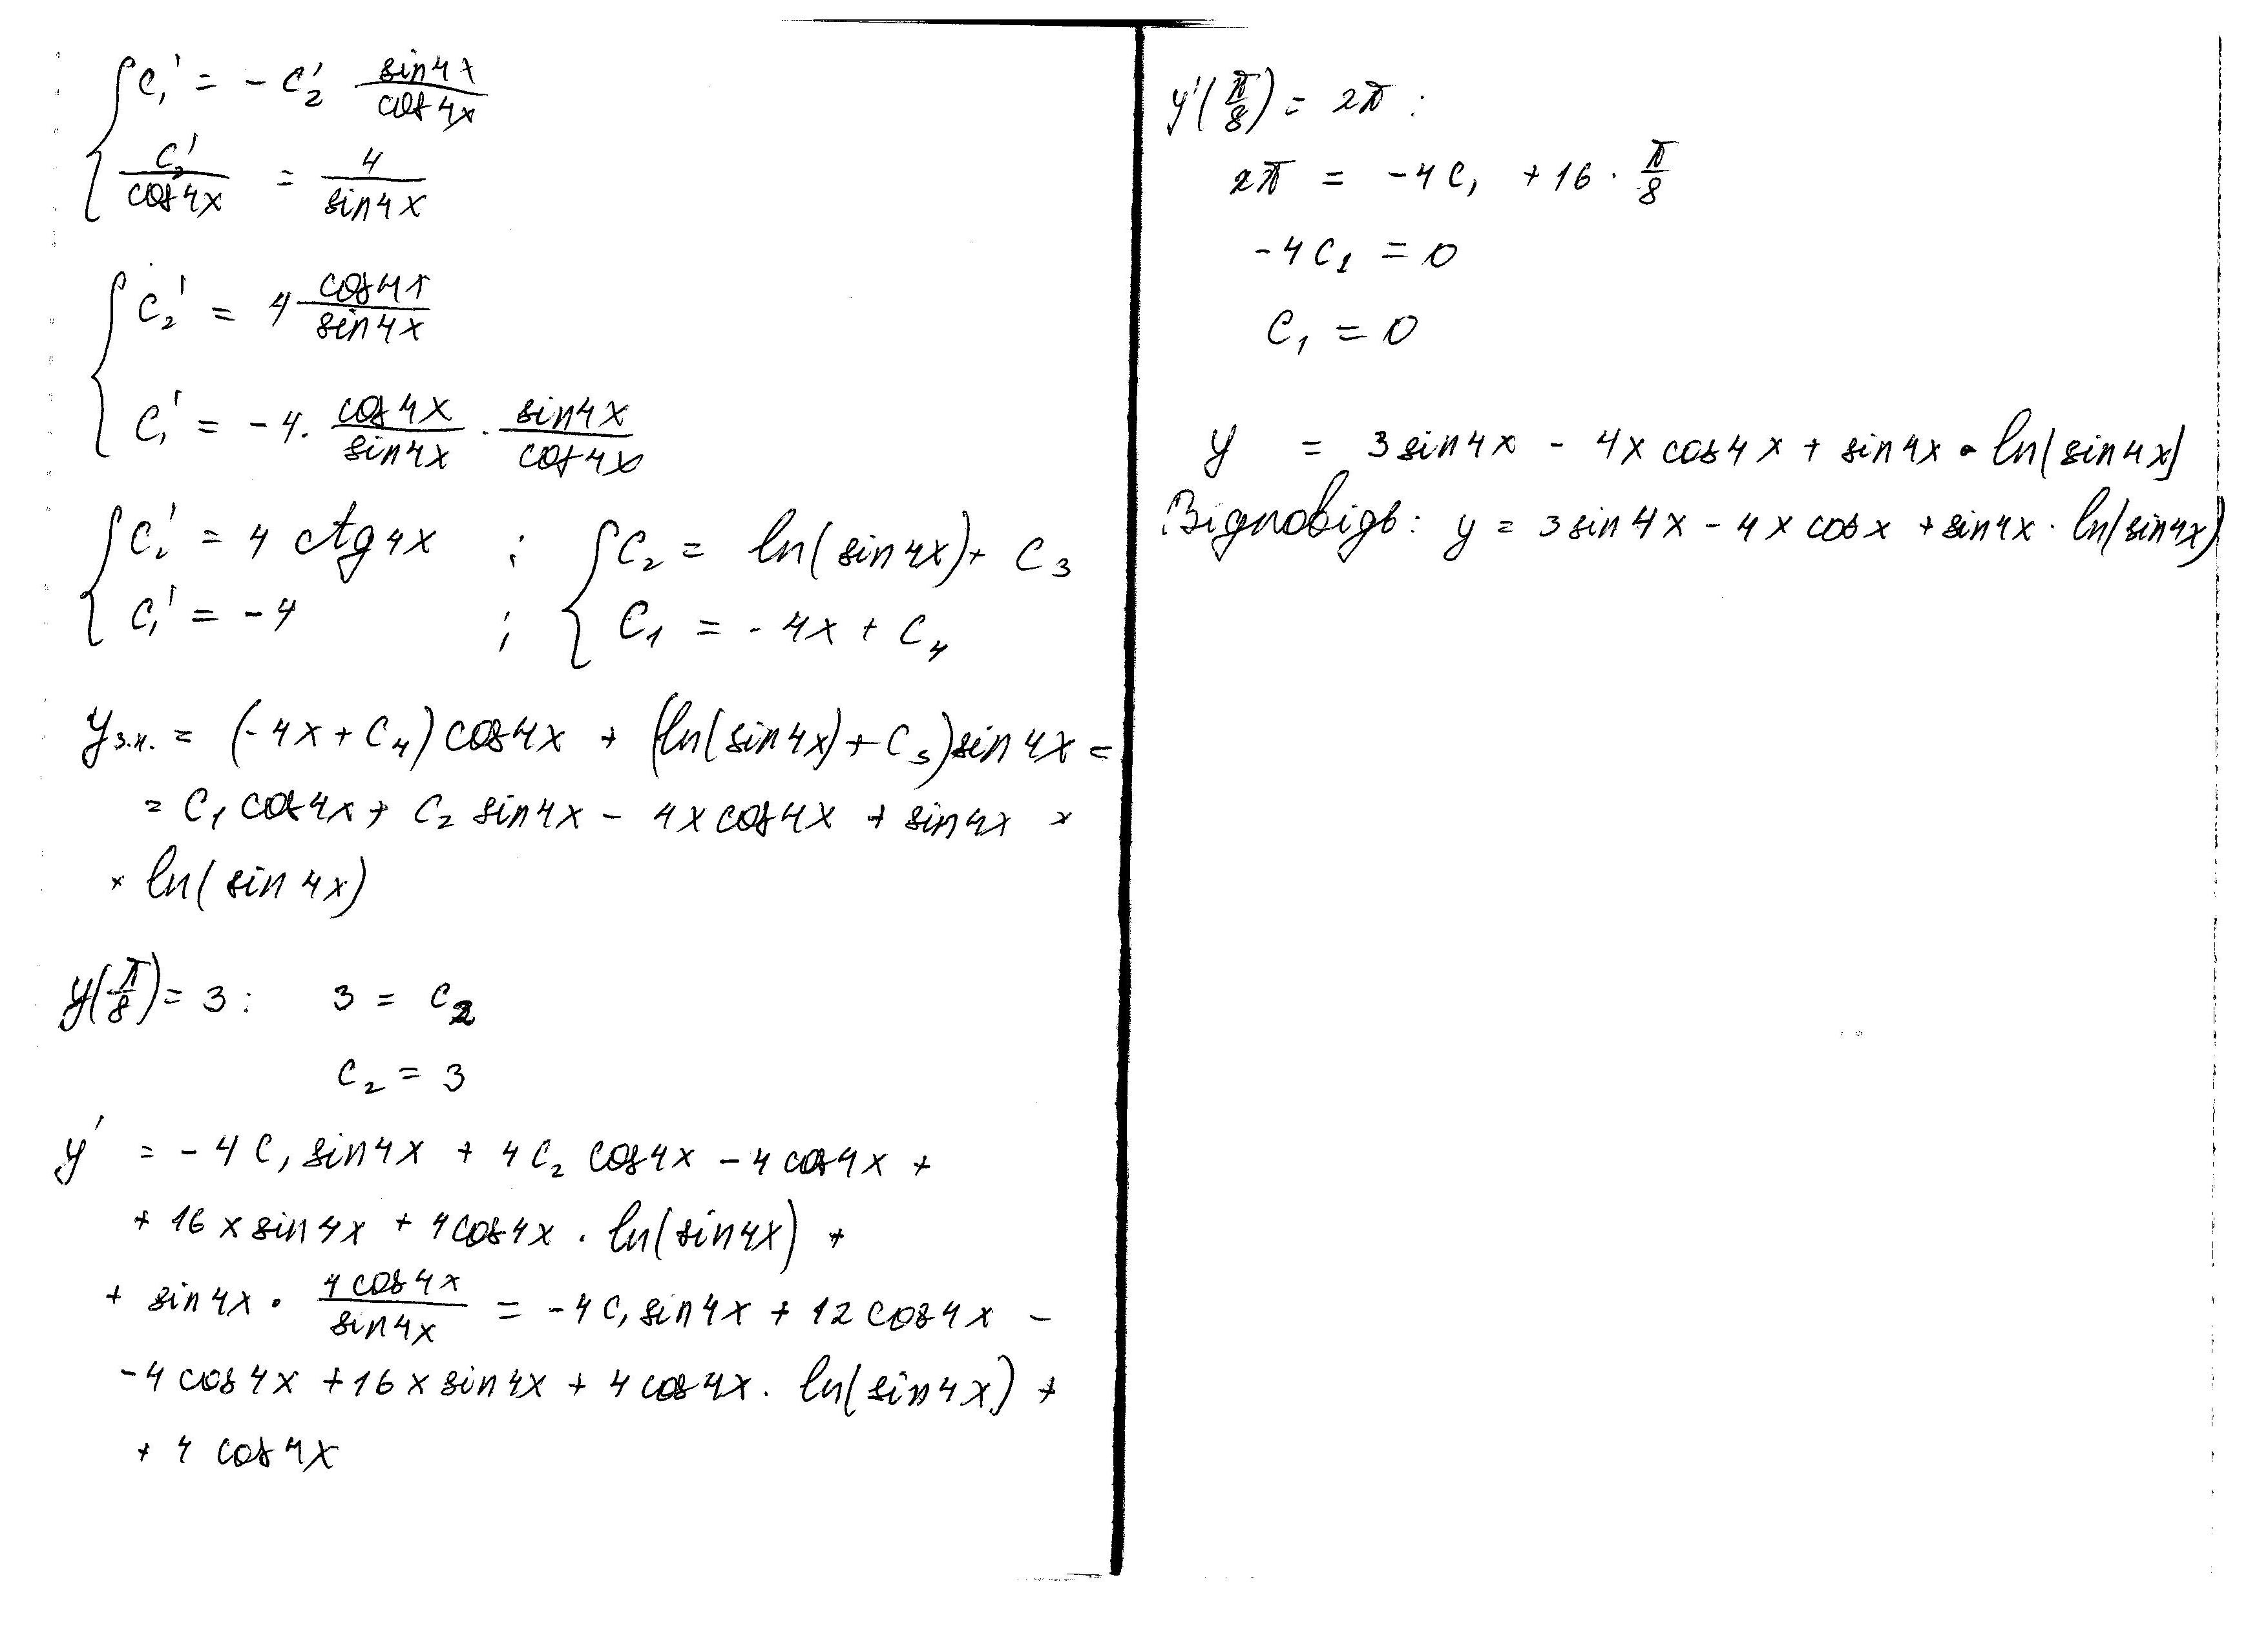 { C₁' = - C₂' sin4x/cos4x
C₂'/cos4x = 4/sin4x
{ C₂' = 4 cos4x/sin4x
C₁' = -4 · cos4x/sin4x · sin4x/cos4x
{ C₂' = 4 ctg4x ; { C₂ = ln(sin4x) + C₃
C₁' = -4 ; C₁ = -4x + C₄
yз.н. = (-4x + C₄) cos4x + (ln(sin4x) + C₃) sin4x =
= C₁ cos4x + C₂ sin4x - 4x cos4x + sin4x ×
× ln(sin4x)
y(π/8) = 3 : 3 = C₂
C₂ = 3
y' = -4C₁ sin4x + 4C₂ cos4x - 4cos4x +
+ 16x sin4x + 4cos4x · ln(sin4x) +
+ sin4x · 4cos4x/sin4x = -4C₁ sin4x + 12cos4x -
-4cos4x + 16x sin4x + 4cos4x · ln(sin4x) +
+ 4cos4x
y'(π/8) = 2π :
2π = -4C₁ + 16 · π/8
-4C₁ = 0
C₁ = 0
y = 3sin4x - 4x cos4x + sin4x · ln(sin4x)
Відповідь: y = 3sin4x - 4x cosx + sin4x · ln(sin4x)